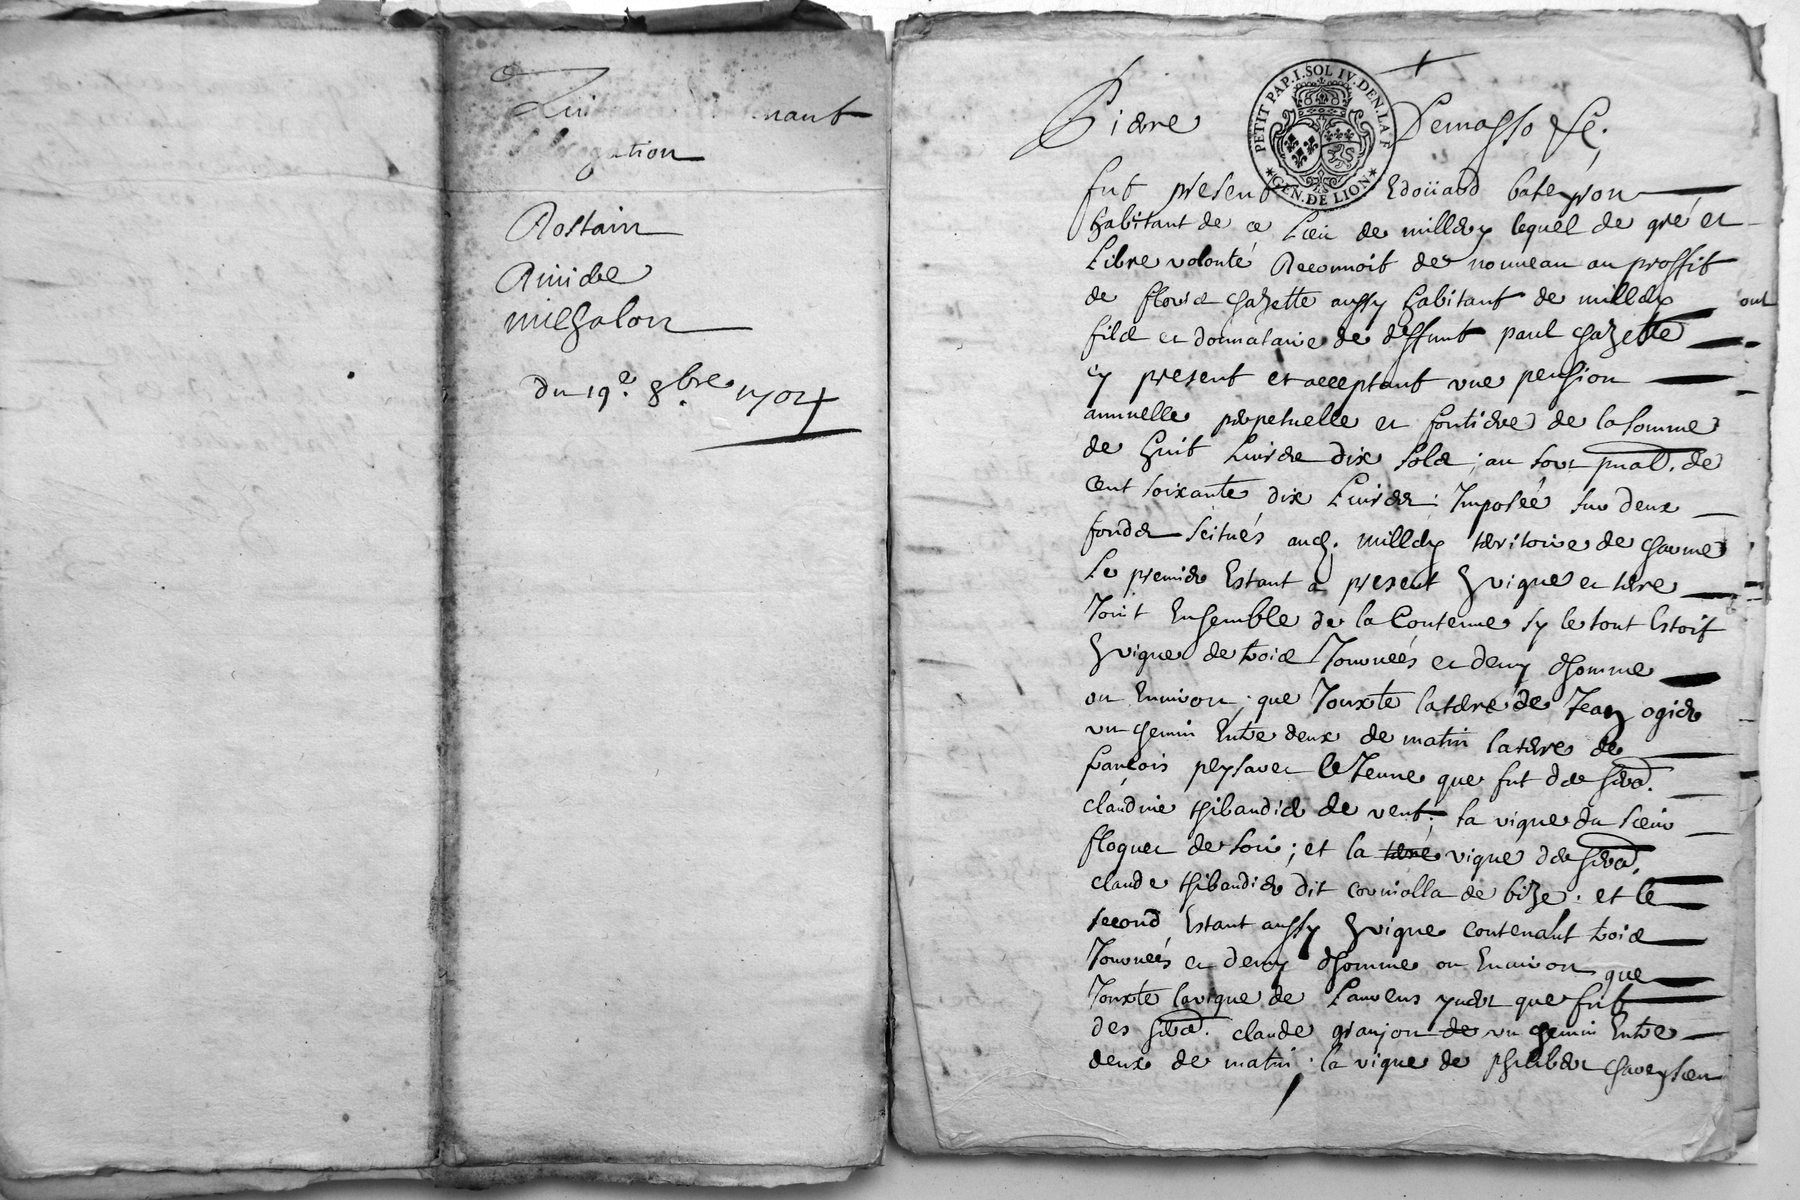 nant
gation
Rostain
Rivide
michalon
du 19e. 8bre 1704
Pierre Demasso
PETIT PAP. I. SOL IV. DEN. LA F
GEN. DE LION
fut present Edoüard bateyron
habitant de ce Lieu de millery lequel de gré et
Libre volonté Reconnoit de nouveau au proffit
de fleurie chazette aussy habitant de millery
fils et donnataire de deffunt paul chazette
cy present et acceptant une pension
annuelle perpetuelle et fontiere de la somme
de huit Livres dix sols ; au sort pnal. de
Cent soixante dix Livres : Imposée sur deux
fonds scitués aud. millery territoire de charme
Le premier Estant a present En vigne et terre
Joint Ensemble de la Contenue sy le tout Estoit
En vigne de trois Journeés et demy dhomme
ou Environ ; que Jouxte la terre de Jean ogier
un chemin Entre deux de matin la terre de
françois peysaret le Jeune que fut des hers.
claudine thibaudier de vent ; la vigne du sieur
floquet de soir ; et la terre vigne des hers.
claude thibaudier dit cornialla de bize : et le
second Estant aussy En vigne contenant trois
Journeés et demy dhomme ou Environ que
Jouxte la vigne de Laurens que fut
des hers. claude granjon de un chemin Entre
deux de matin : la vigne de philibert